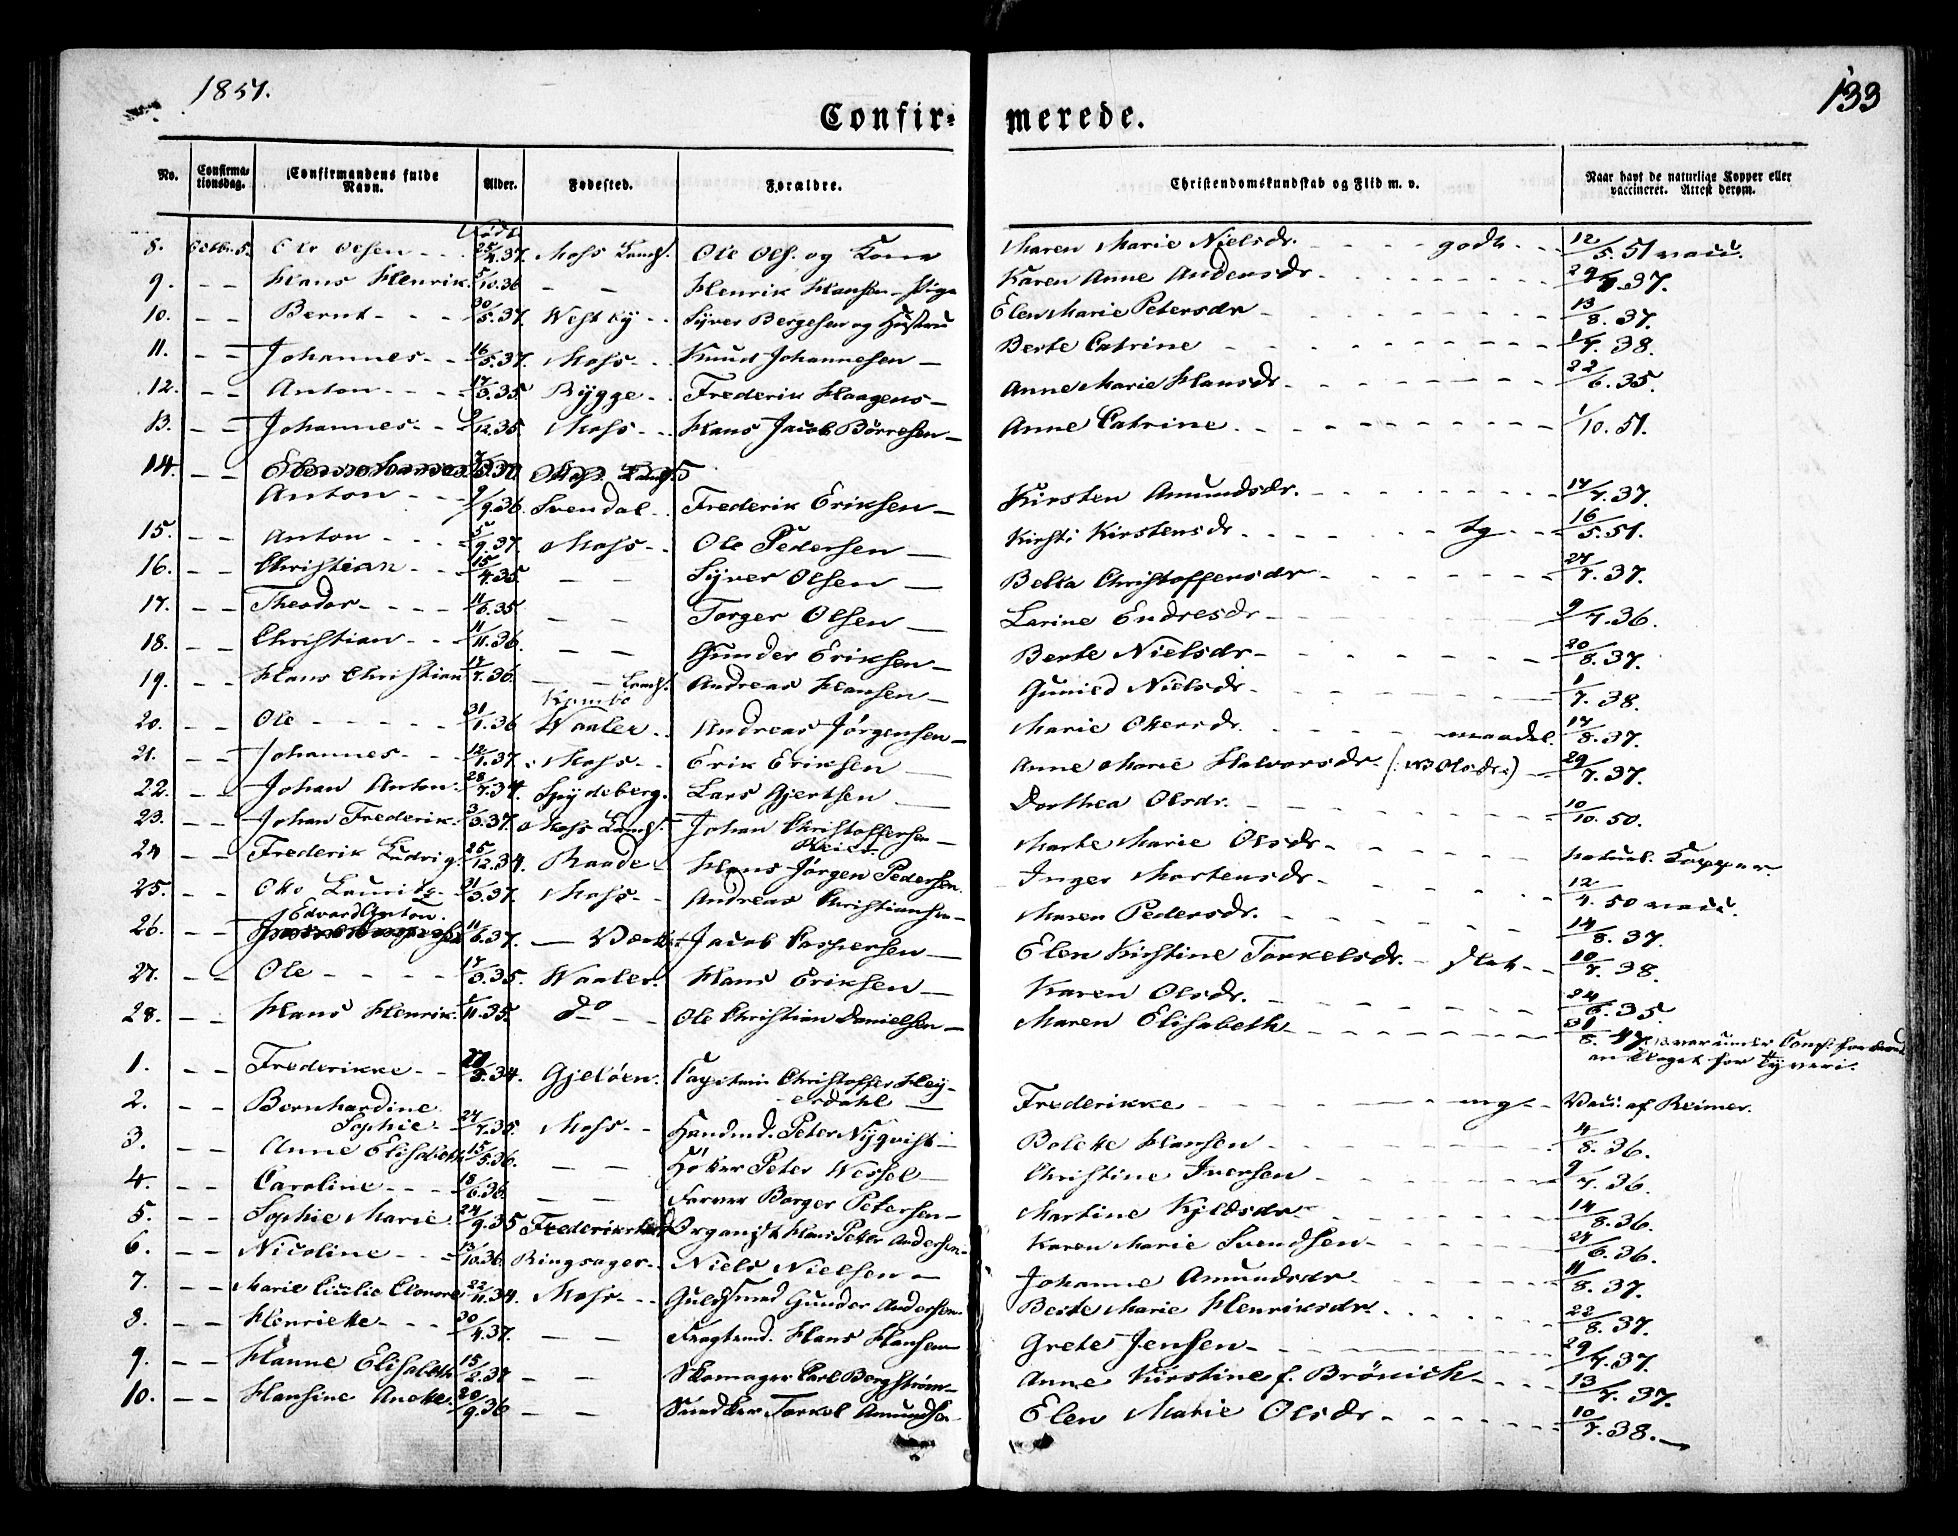 1851.
133
Confir- merede.
No. Confirma-tionsdag. Confirmandens fulde Navn. Alder. Fødested. Forældre. Christendomskundskab og Flid m. v. Naar havt de naturlige Kopper eller vaccineret. Attest derom.
Født
8. Octbr. 5. Ole Olsen 25/4.37. Moss Lands. Ole Ols. og Kone Maren Marie Nielsdr. godt 12/5.51 vacc.
9. Hans Henrik 5/10.36 Henrik Hansen Karen Anne Andersdr 37.
10. Bernt 30/5.37. Westby Syver Bergesen og Hustru Elen Marie Petersdr 13/8.37.
11. Johannes 16/5.37. Moss Knud Johannesen Berte Catrine 1/7.38.
12. Anton 17/3.35 Rygge Frederik Haagens Anne Marie Hansdr 22/6.35.
13. Johannes 9/12.35 Moss Hans Jacob Börresen Anne Catrine 1/10.51.
14. Moss Lands.
Anton 9/9.36 Svendal Frederik Eriksen Kirsten Amundsdr. 17/7.37.
15. Anton 5/9.37. Moss Ole Pedersen Kirsti Kirstensdr tg 16/5.51.
16. Christian 15/4.35 Syver Olsen Bella Christoffersdr 27/7.37.
17. Theodor 11/6.35 Torger Olsen Larine Endresdr 9/7.36.
18. Christian 11/11.36. Gunder Eriksen Berte Nielsdr 20/8.37.
19. Hans Christian 17/7.36. Lands. Andreas Hansen Gunild Nielsdr 1/7.38.
Kambo
20. Ole 31/1.36 Waaler Andreas Jørgensen Marie Olersdr. maadel. 17/8.37.
21. Johannes 12/1.37. Moss Erik Eriksen Anne Marie Halvorsdr. (: NB Olsdr :) 29/7.37.
22. Johan Anton 28/7.34. Spydeberg. Lars Gjertsen Dorthea Olsdr. 10/10.50.
23. Johan Frederik 3/3.37. Moss Lands. Johan Christoffersen Marte Marie Olsdr naturl. Kopper.
24 Frederik Ludvig 25/12.34. Raade Hans Jørgen Pedersen Inger Mortensdr 12/7.50 vacc.
25. Otto Lauritz 31/3.37. Moss Andreas Christiansen Maren Pedersdr. 14/8.37.
Edvard Anton.
26. 11/6.37. Værk Jacob Caspersen Elen Kirstine Torkelsdr. slet 10/7.38.
27. Ole 17/3.35. Waaler. Hans Eriksen Karen Olsdr. 24/6.35.
28. Hans Henrik 11.35. do Ole Christian Danielsen Maren Elisabeth 31/8.47. var under Conf.
an klaget for Tyveri.
1. Frederikke 5.34. Gjelöen. Capitain Christoffer Hey-
erdahl Frederikke mg Vacc. af Reimer.
2. Bernhardine
Sophie 27/7.35. Moss Handmd. Peter Nyqvist Bolette Hansen 4/8.36.
3. Anne Elisabeth 15/5.36. Høker Peter Wessel Christine Iversen 9/7.36.
4. Caroline 18/6.36. Farver Borger Petersen Martine Kjeldsdr 14/8.36.
5. Sophie Marie 24/9.35 Frederikstad Organist Hans Peter Andersen Karen Marie Svendsen 27/6.36.
6. Nicoline 13/10.36. Ringsager Niels Nielsen Johanne Amundsdr 11/8.37.
7. Marie Cicilie Elenore 22/11.34. Moss Guldsmed Gunder Andersen Berte Marie Henriksdr. 22/8.37.
8. Henriette 30/4.37. Fragtmd. Hans Hansen Grete Jensen 29/7.37.
9. Hanne Elisabeth 15/2.37 Skomager Carl Bergstrøm Anne Kirstine f. Brönich 13/7.37.
10. Hansine Anette. 20/9.36 Snedker Torkel Amundsen Elen Marie Olsdr 10/7.38.